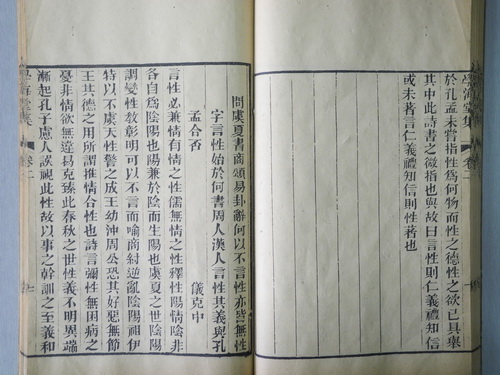 學海堂集 卷二
於孔孟未嘗指性爲何物而性之德性之欲已具舉
其中此詩書之微指也與故曰言性則仁義禮知信
或未著言仁義禮知信則性著也
問虞夏書商頌易卦辭何以不言性亦皆無性
字言性始於何書周人漢人言性其義與孔
孟合否
儀克中
言性必兼情有情之性儒無情之性釋性陽情陰非
各自爲陰陽也陽兼於陰而生陽也虞夏之世陰陽
調變性教彰明可以不言而喻商紂逆亂陰陽祖伊
特以不虞天性警之成王幼沖周公恐其好惡無節
王其德之用所謂推情合性也詩言彌性無困病之
憂非情欲無違易克臻此春秋之世性義不明異端
漸起孔子慮人誤視此性故以事之幹訓之至義和
學海堂集 卷二